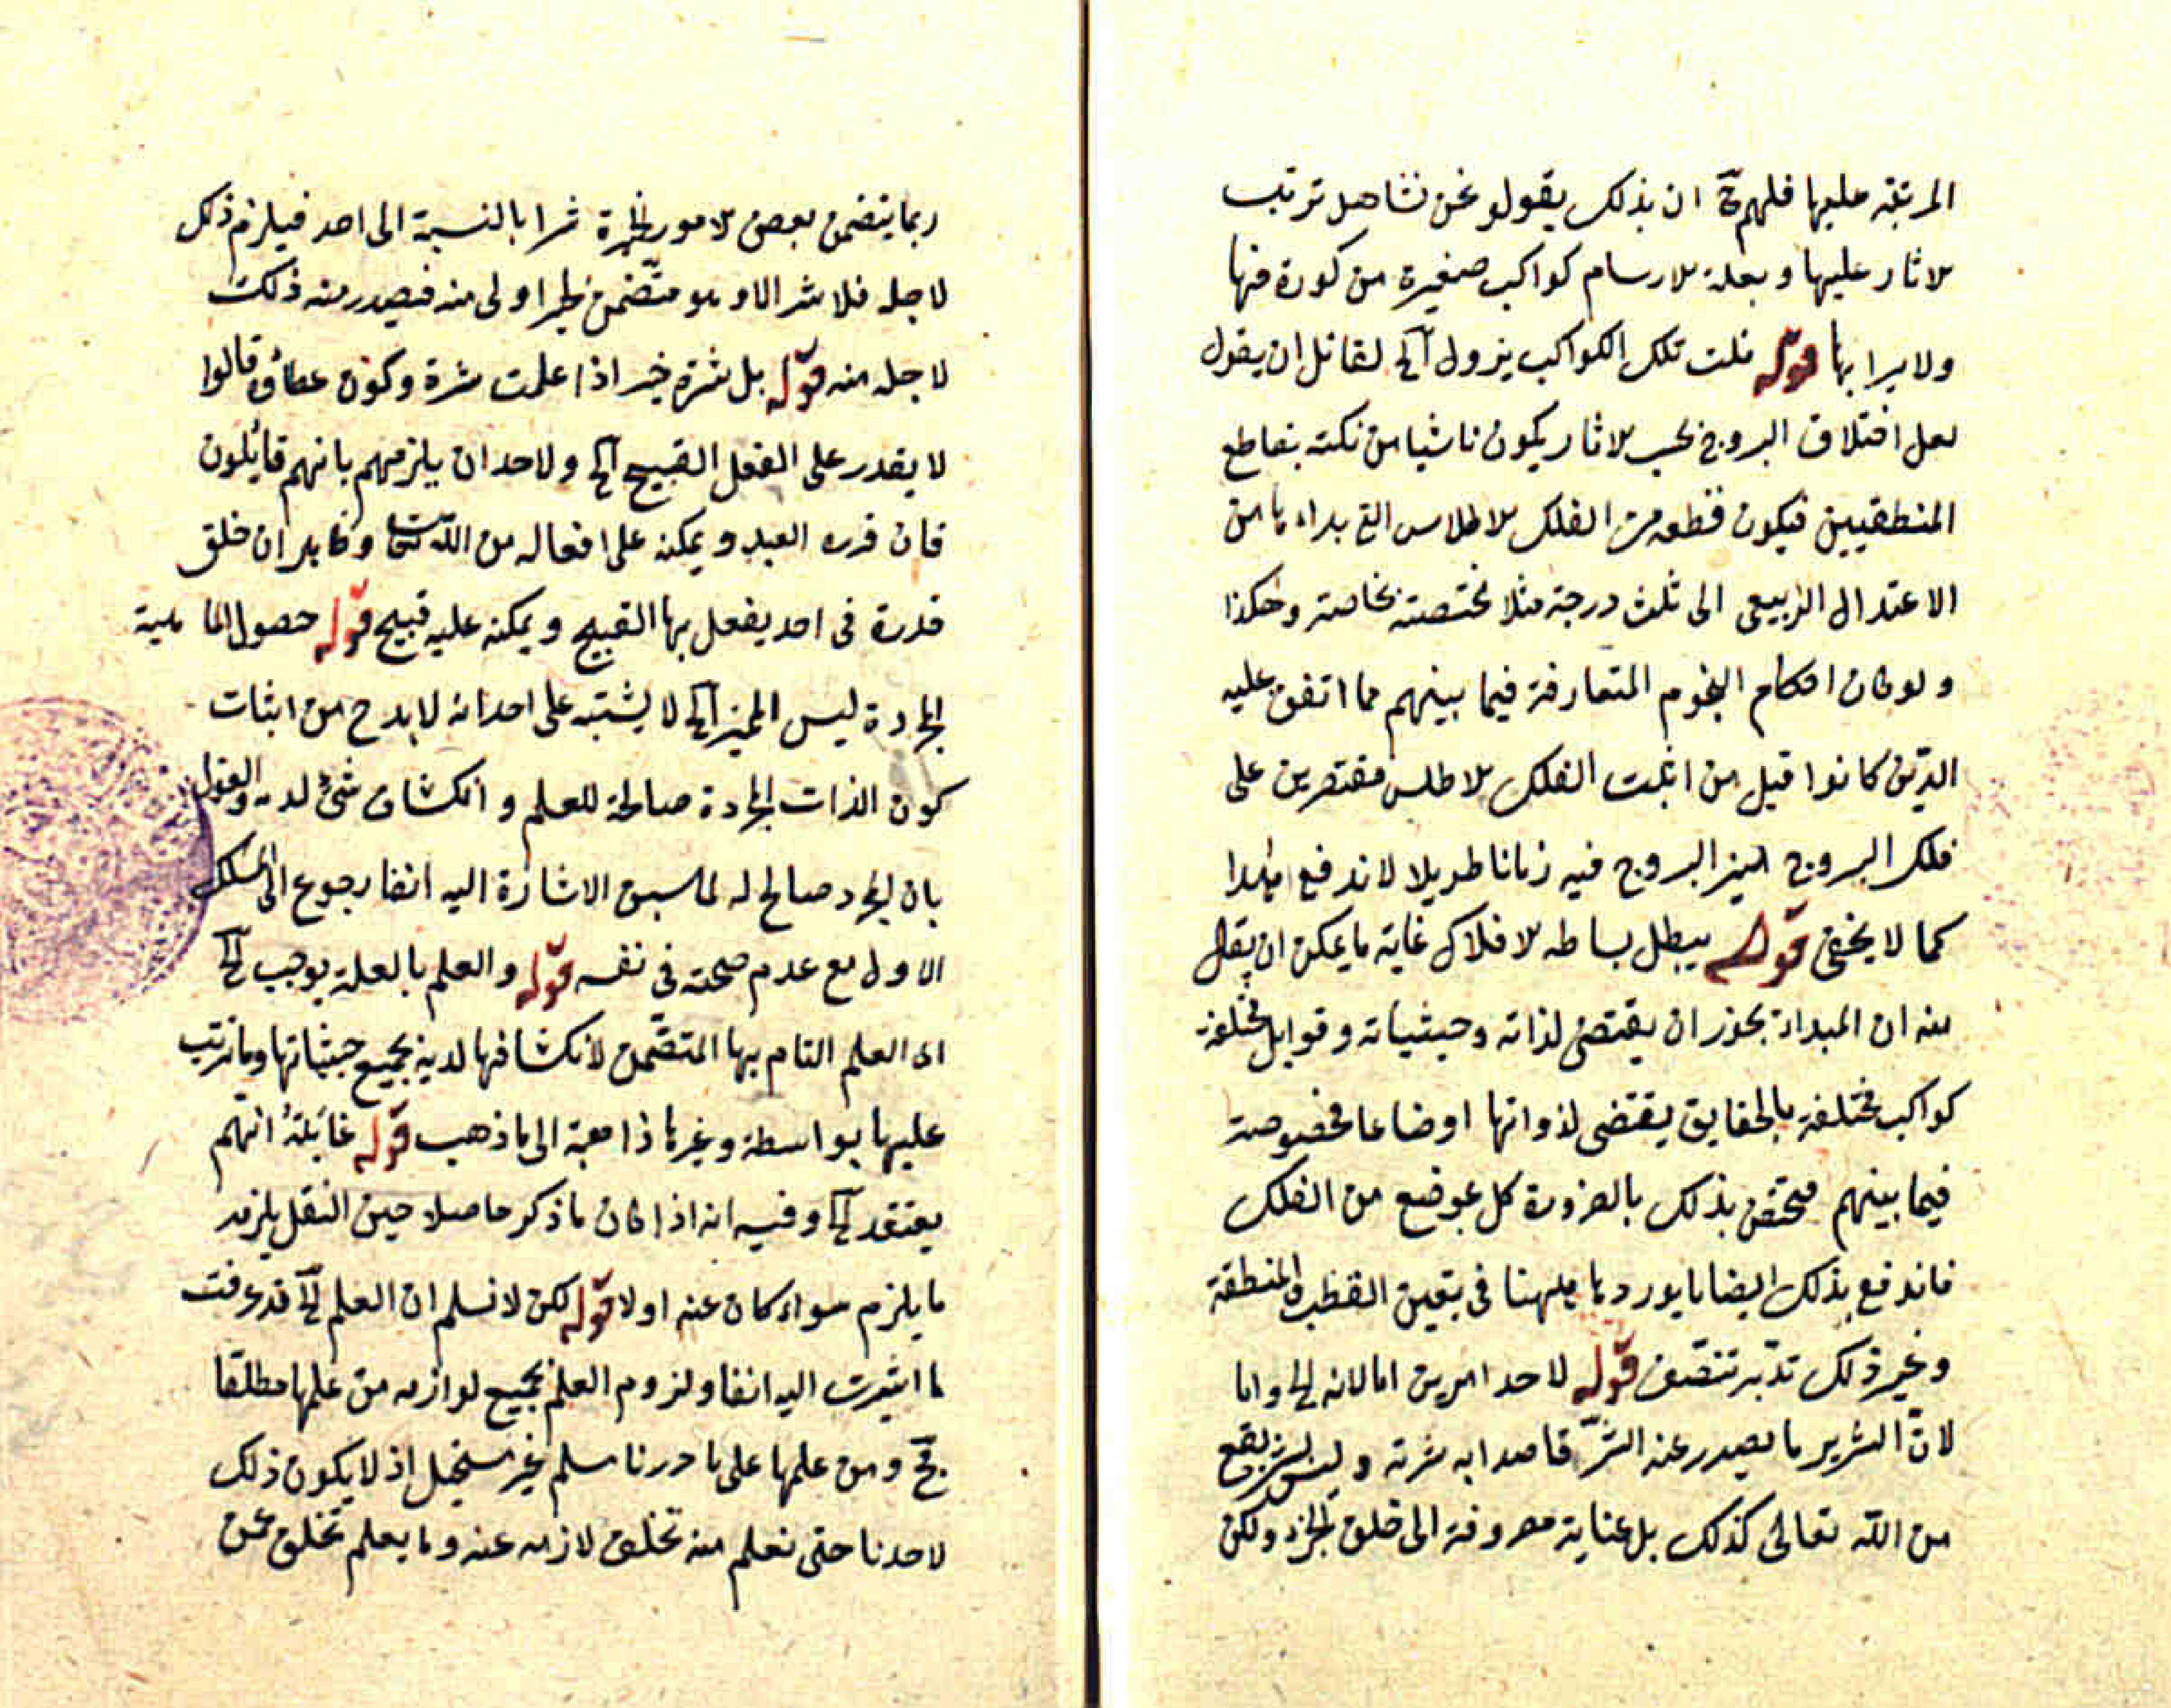 المرتبة عليها فلهم ح ان بذلك يقولو نحن نشاهد ترتب
الاثار عليها وبعلة الارسام كواكب صغيرة من كورة فيها
ولا يرا بها قوله قلت تلك الكواكب يزول الخ لقائل ان يقول
لعل اختلاف البروج بحسب الاثار يكون ناشيا من نكتة بتقاطع
المنطقيين فيكون قطعة من الفلك الاطلاس التي بداءها من
الاعتدال الربيعى الى ثلث درجة مثلا مختصة بخاصة وهكذا
ولو كان احكام النجوم المتعارفة فيما بينهم مما اتفق عليه
الذين كانوا قبل من اثبت الفلك الاطلس مقتصرين على
فلك البروج البروج فيه زمانا طويلا لاندفع
كما لا يخفى قوله يبطل بساطه الافلاك غاية ما يمكن ان يقال
منه ان المبداء يجوز ان يقتضى لذاته وحيثياته وقوابل مختلفة
كواكب مختلفة بالحقايق يقتضى لذواتها اوضاعا مخصوصة
فيما بينهم فيختص بذلك بالضرورة كل بموضع من الفلك
فاندفع بذلك ايضا ما يورد هاهنا فى بتعين القطب والمنطقة
وغير ذلك تدبر تنصف قوله لاحد امرين اما لانه الخ واما
لان الشرير ما يصدر عنه الشر قاصدا به شرته وليس يقع
من الله تعالى كذلك بل عناية مصروفة الى خلق الخير ولكن
ربما يتضمن بعض الامور الخيرة شرا بالنسبة الى احد فيلزم ذلك
لاجله فلا شر الا وهو متضمن لخير اولى منه فيصدر منه ذلك
لاجله منه قوله بل شرة خير اذا علمت شرة وكون قالوا
لا يقدر على الفعل القبيح الخ ولاحد ان يلزمهم بانهم قائلون
فان قدره العبد ويمكنه على افعاله من الله تعالى ان خلق
قدرة فى احد يفعل بها القبيح ويمكنه عليه قبيح قوله حصول الماهية
المجردة ليس المميز الخ لا يشتبه على احد انه لا بد ح من اثبات
كون الذات المجردة صالحة للعلم و انكشاف شئ لديه والقول
بان المجرد صالح له لما سبق الاشارة اليه انفا رجوع الى المسلك
الاول مع عدم صحته فى نفسه قوله والعلم بالعلة يوجب الخ
اى العلم التام بها المتضمن لانكشافها لديه بجميع حيثياتها وما ترتب
عليها بواسطة وغيرها ذاهبة الى ما ذهب قوله غائلة انهم
يعتقد الخ وفيه انه اذا كان ما ذكر حاصلا حين النقل يلزمه
ما يلزم سواء كان عنه اولا قوله لكن لا نسلم ان العلم الخ قد عرفت
ما اشرت اليه انفا ولزوم العلم بجميع لوازمه من علمها مطلقا
بخ ومن علمها على ما درنا مسلم غير مستحيل اذ لا يكون ذلك
لاحدنا حتى نعلم منه تخلف لازمه عنه وما يعلم تخلف عن